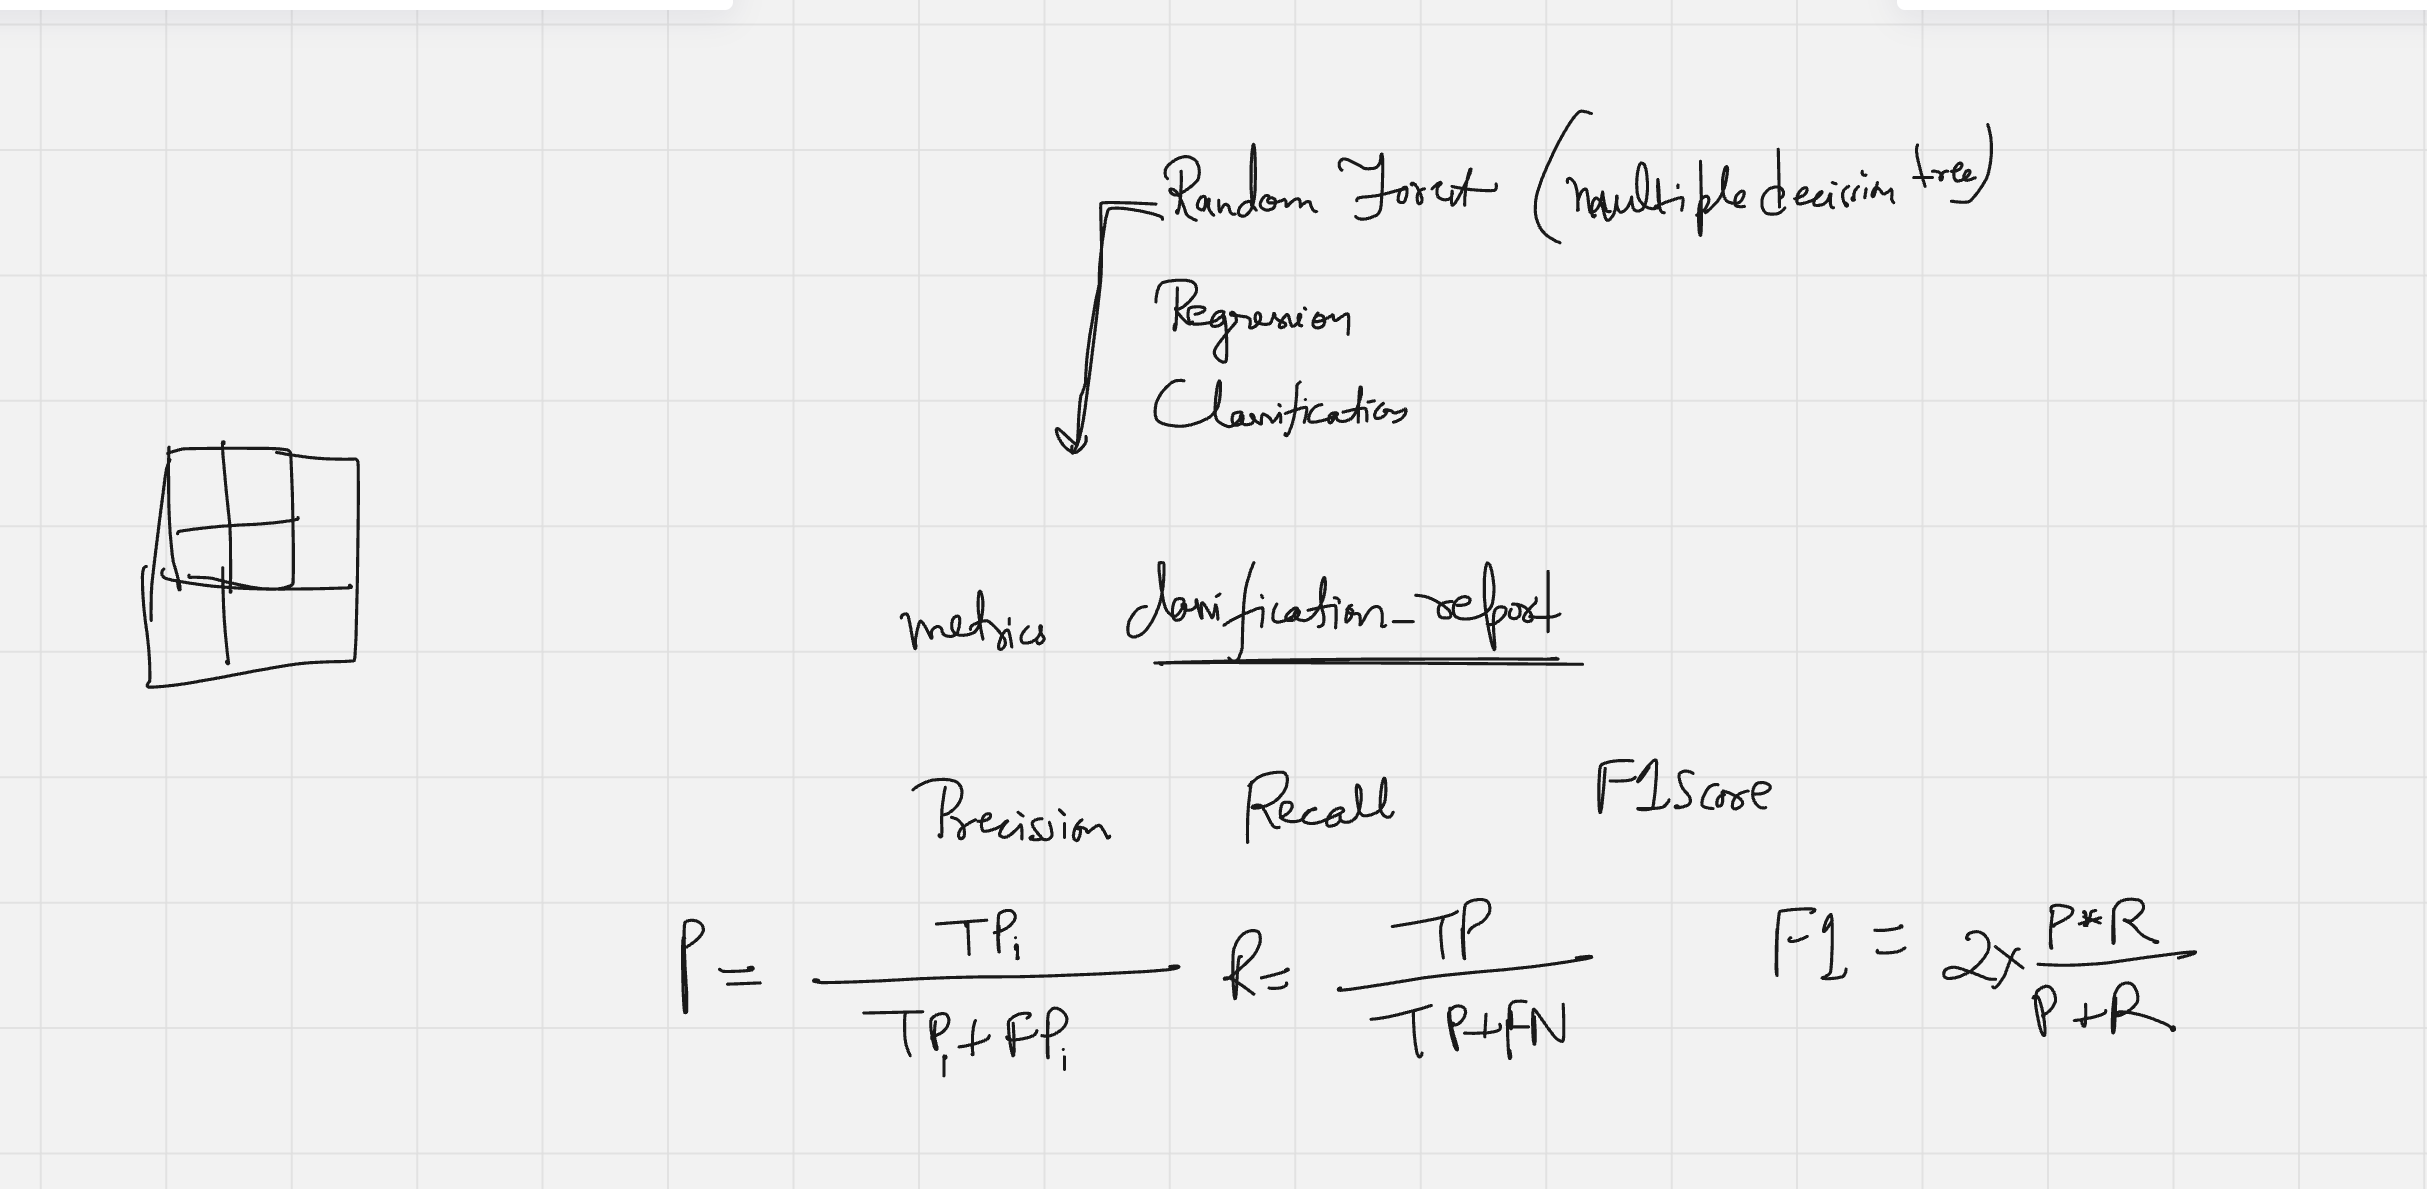 Random Forest (multiple decision tree)
Regression
Classification
metrics classification_report
Precission Recall F1 Score
P = TPi / TPi + FPi R = TP / TP+FN F1 = 2x P*R / P+R